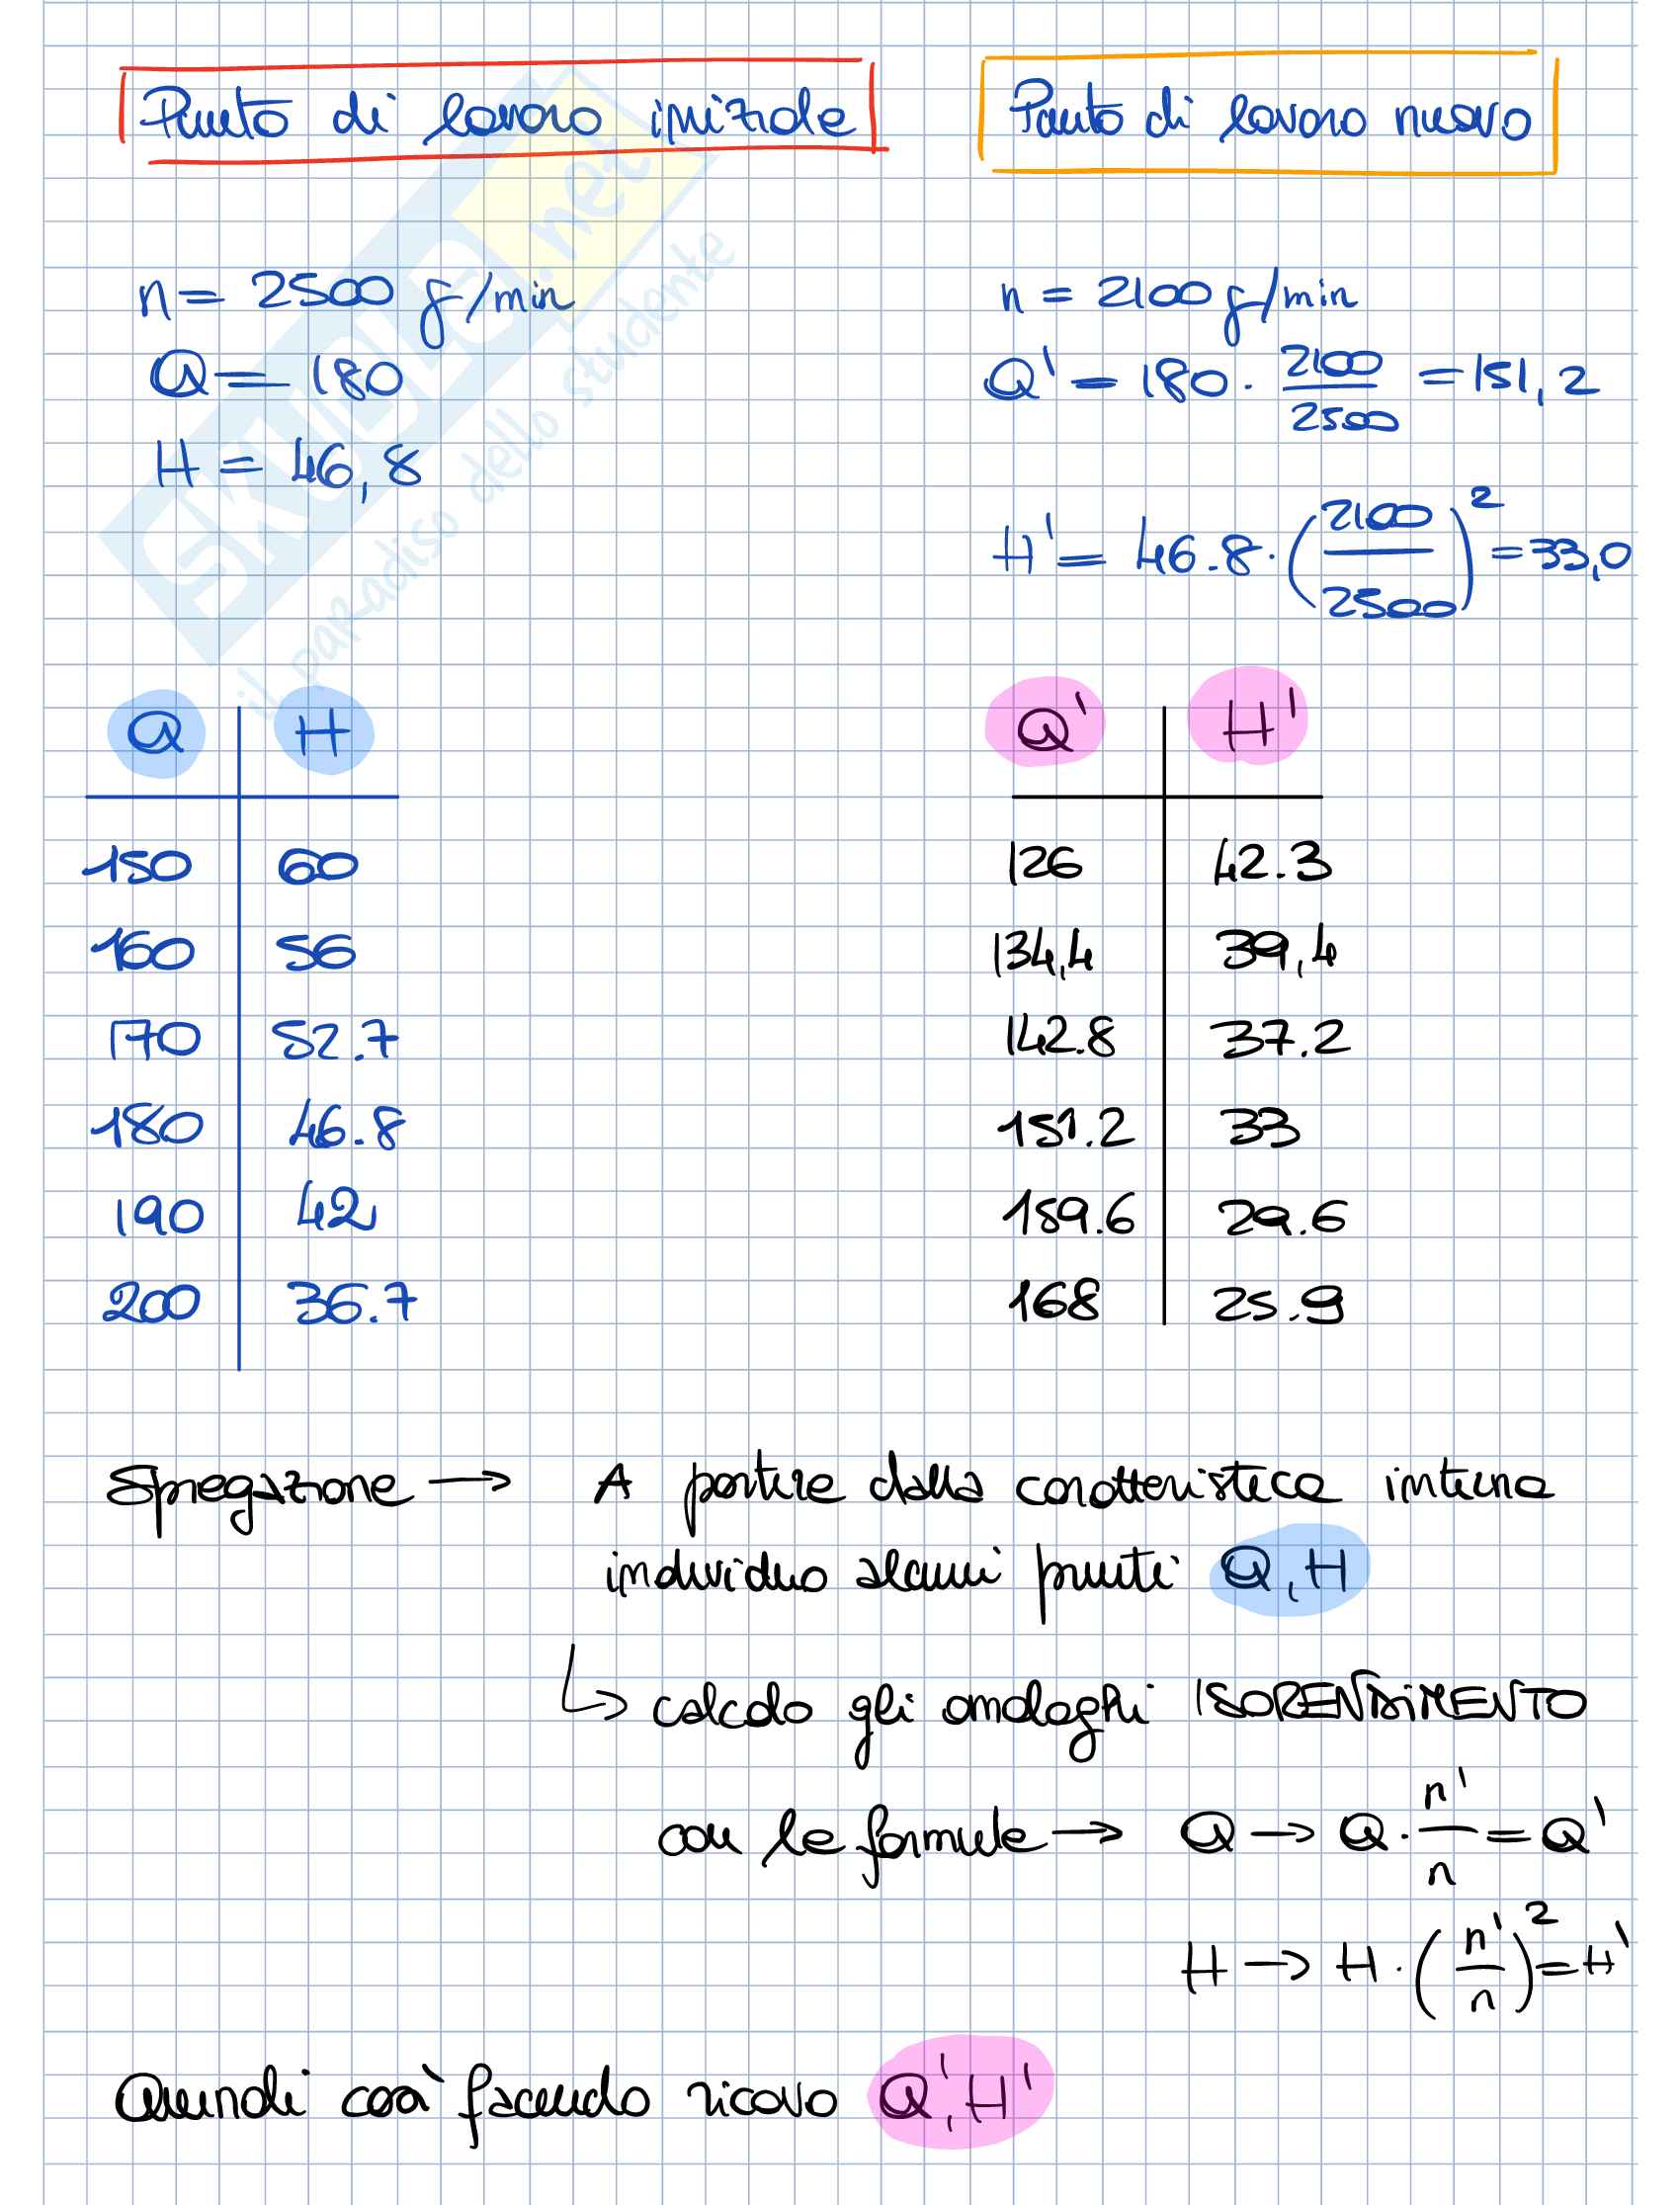 Punto di lavoro iniziale
Punto di lavoro nuovo
SKUOLA.net
il paradiso dello studente
n = 2500 g/min
Q = 180
H = 46,8
n = 2100 g/min
Q' = 180 · 2100/2500 = 151,2
H' = 46.8 · (2100/2500)² = 33,0
Q | H
150 | 60
160 | 56
170 | 52.7
180 | 46.8
190 | 42
200 | 36.7
Q' | H'
126 | 42.3
134,4 | 39,4
142.8 | 37.2
151.2 | 33
159.6 | 29.6
168 | 25.9
Spiegazione → A partire dalla caratteristica interna
individuo alcuni punti Q, H
↳ calcolo gli omologhi ISORENDIMENTO
con le formule → Q → Q · n'/n = Q'
H → H · (n'/n)² = H'
Quindi così facendo ricavo Q', H'